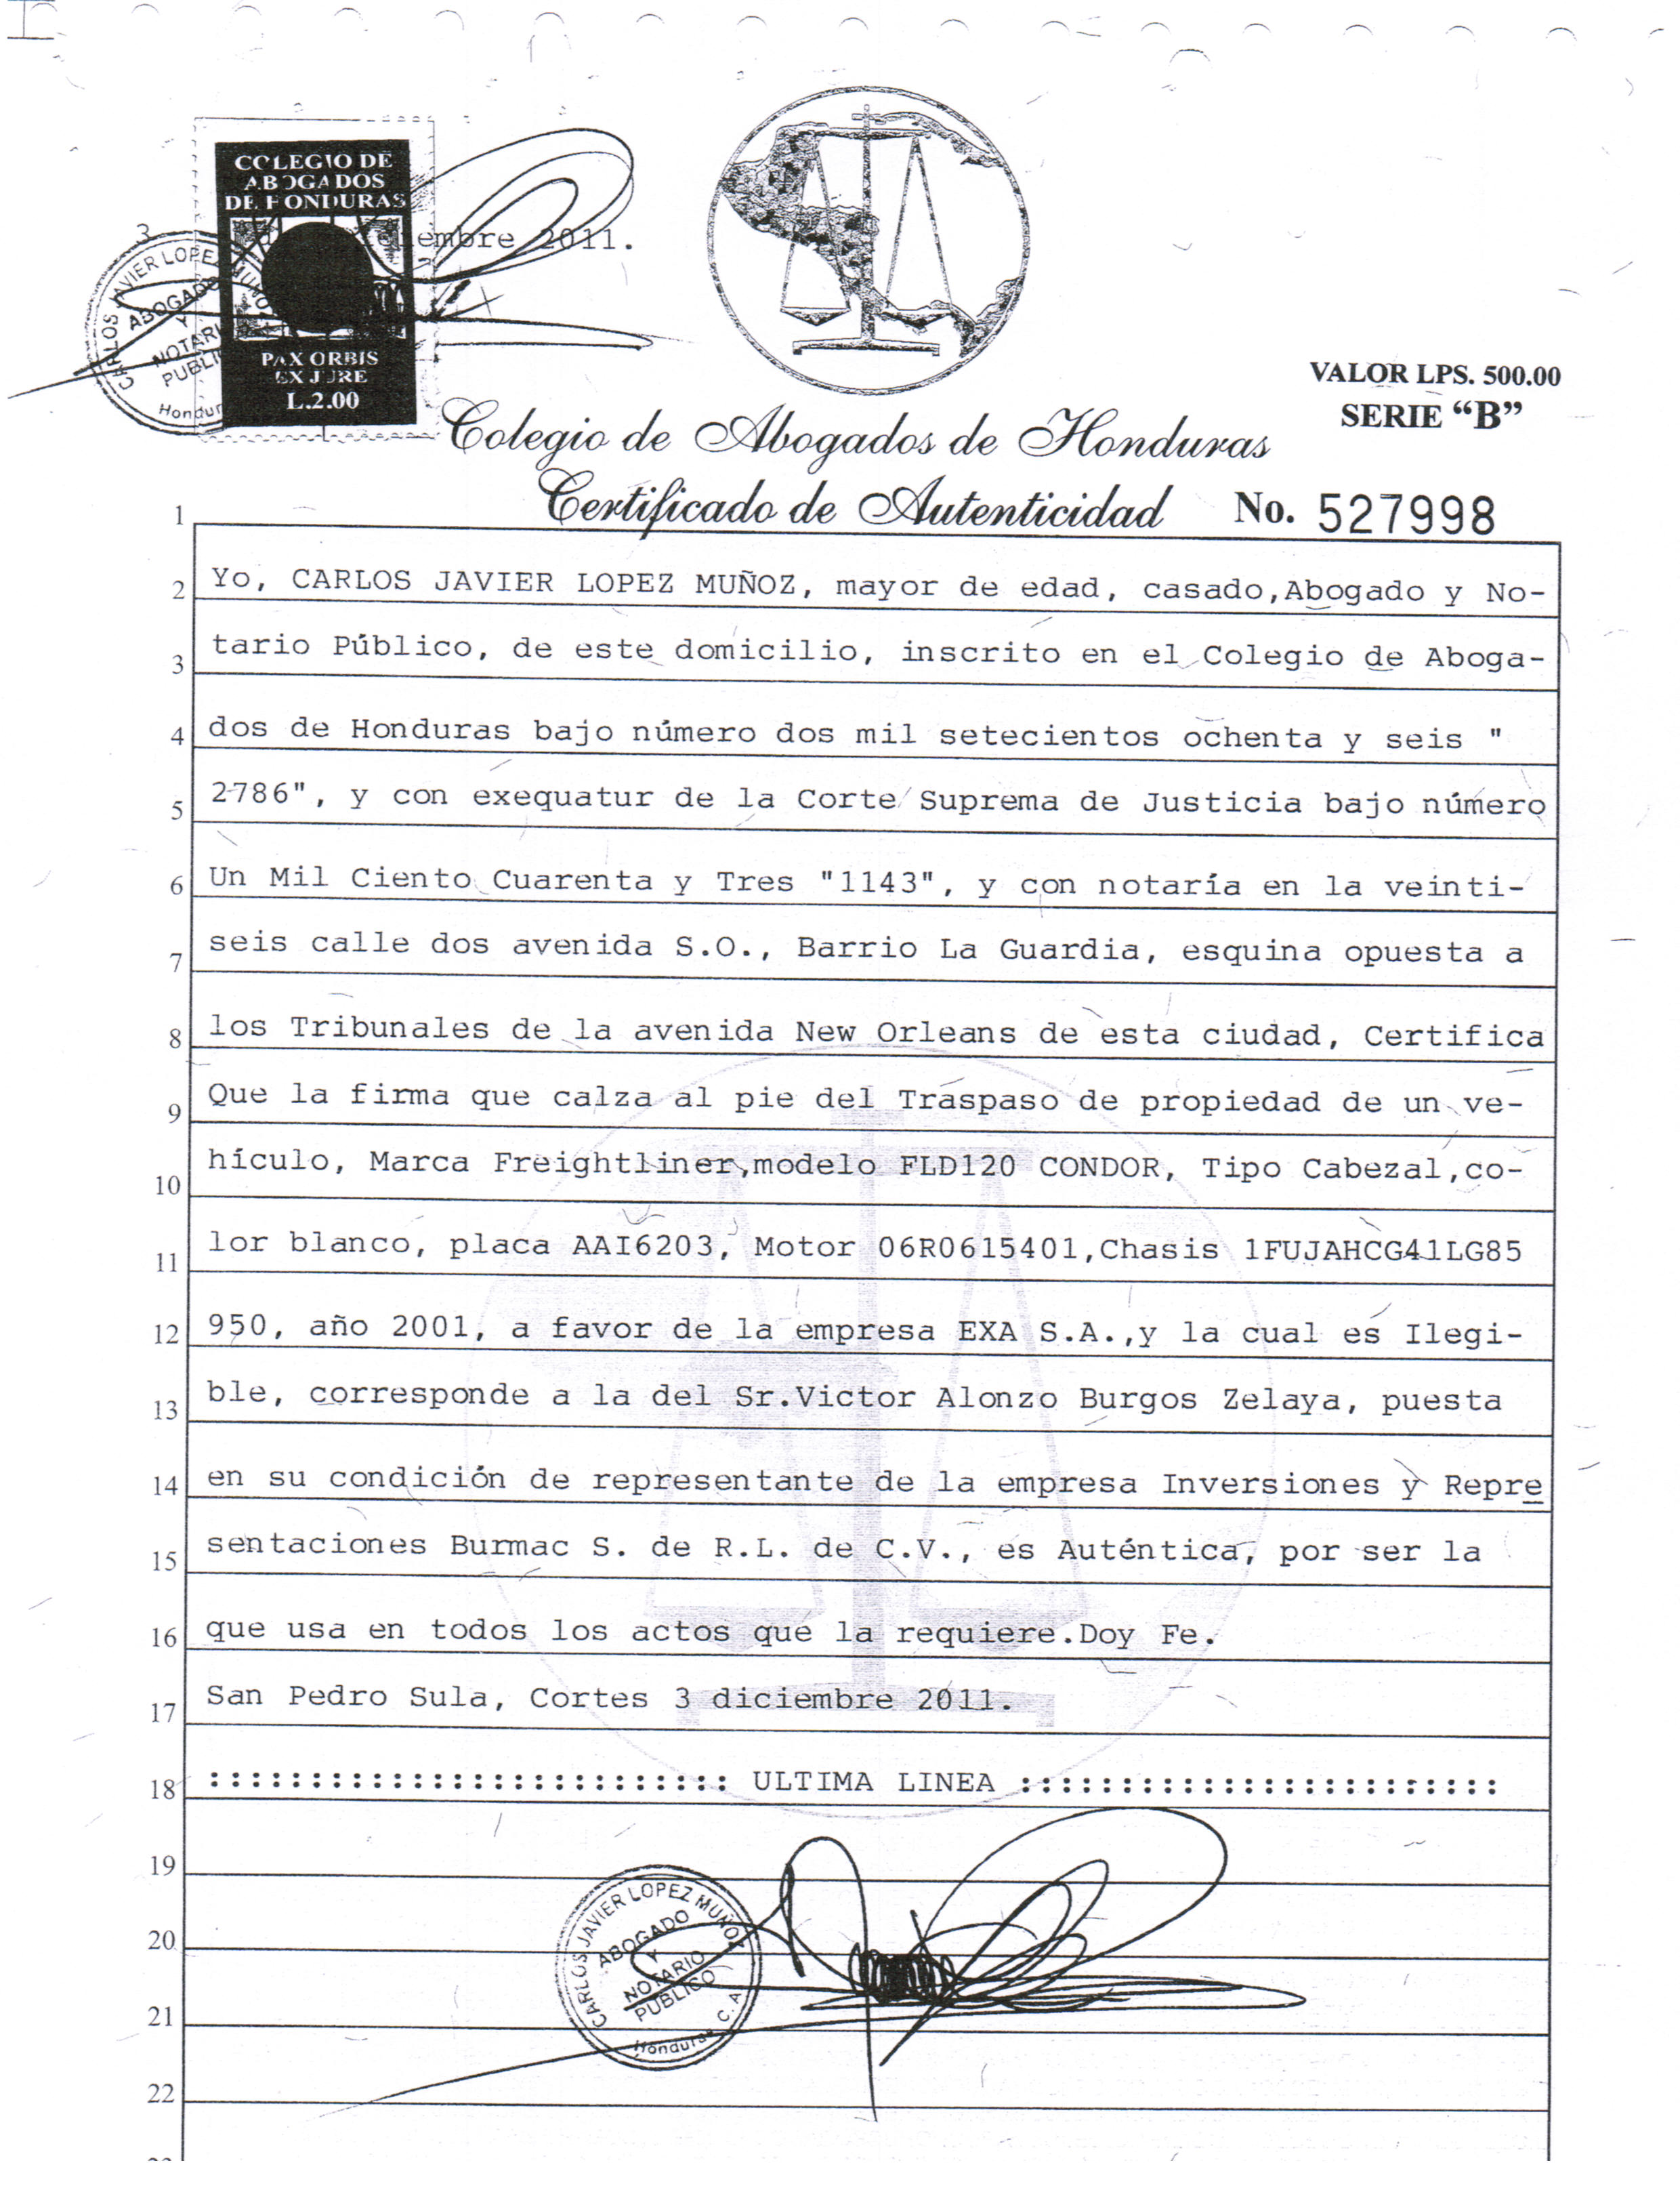 COLEGIO DE
ABOGADOS
DE HONDURAS
3 diciembre 2011.
CARLOS JAVIER LOPEZ MUÑOZ
ABOGADO
Y
NOTARIO
PUBLICO
Honduras
PAX ORBIS
EX JURE
L.2.00
VALOR LPS. 500.00
SERIE “B”
Colegio de Abogados de Honduras
Certificado de Autenticidad No. 527998
1
2 Yo, CARLOS JAVIER LOPEZ MUÑOZ, mayor de edad, casado,Abogado y No-
3 tario Público, de este domicilio, inscrito en el Colegio de Aboga-
4 dos de Honduras bajo número dos mil setecientos ochenta y seis "
5 2786", y con exequatur de la Corte Suprema de Justicia bajo número
6 Un Mil Ciento Cuarenta y Tres "1143", y con notaría en la veinti-
7 seis calle dos avenida S.O., Barrio La Guardia, esquina opuesta a
8 los Tribunales de la avenida New Orleans de esta ciudad, Certifica
9 Que la firma que calza al pie del Traspaso de propiedad de un ve-
10 hículo, Marca Freightliner,modelo FLD120 CONDOR, Tipo Cabezal,co-
11 lor blanco, placa AAI6203, Motor 06R0615401,Chasis 1FUJAHCG41LG85
12 950, año 2001, a favor de la empresa EXA S.A.,y la cual es Ilegi-
13 ble, corresponde a la del Sr.Victor Alonzo Burgos Zelaya, puesta
14 en su condición de representante de la empresa Inversiones y Repre
15 sentaciones Burmac S. de R.L. de C.V., es Auténtica, por ser la
16 que usa en todos los actos que la requiere.Doy Fe.
17 San Pedro Sula, Cortes 3 diciembre 2011.
18 :::::::::::::::::::::::::: ULTIMA LINEA ::::::::::::::::::::::::
19
20
21
22
CARLOS JAVIER LOPEZ MUÑOZ
ABOGADO
Y
NOTARIO
PUBLICO
Honduras C. A.